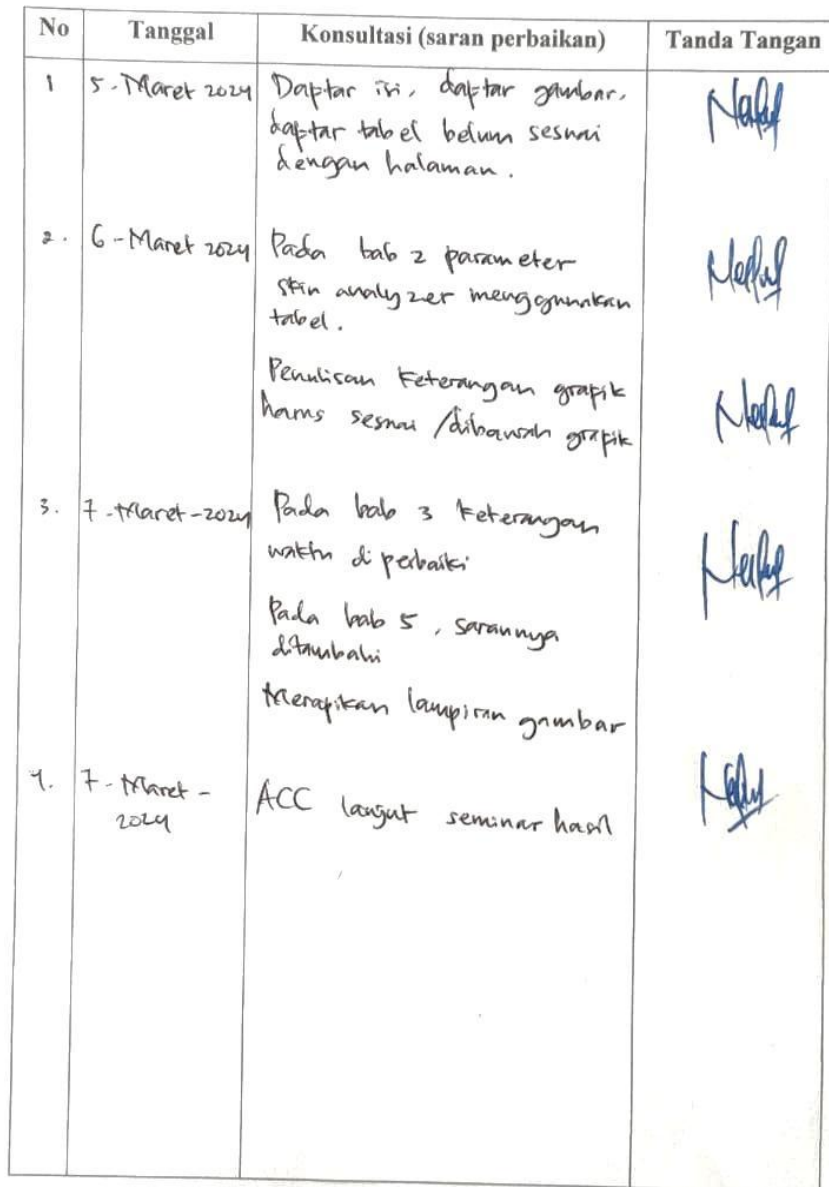 No Tanggal Konsultasi (saran perbaikan) Tanda Tangan
1 5 - Maret 2024 Daptar isi, daptar gambar,
daptar tabel belum sesuai
dengan halaman.
2. 6 - Maret 2024 Pada bab 2 parameter
skin analyzer menggunakan
tabel.
Penulisan keterangan grafik
harus sesuai /dibawah grafik
3. 7 - Maret - 2024 Pada bab 3 keterangan
waktu diperbaiki
Pada bab 5, sarannya
ditambahi
Merapikan lampiran gambar
4. 7 - Maret - ACC lanjut seminar hasil
2024